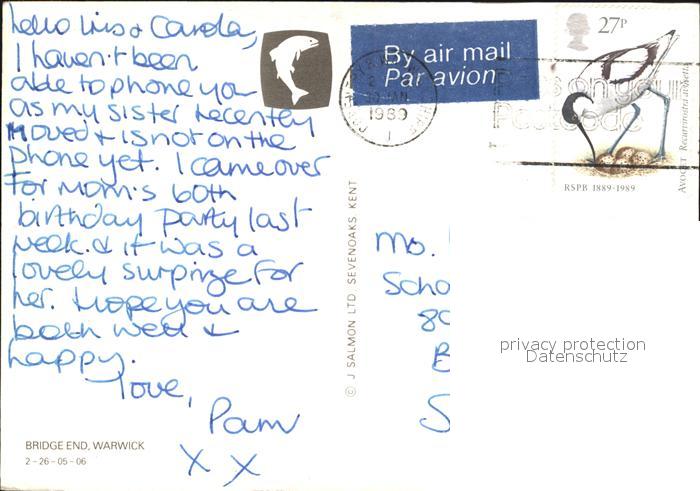 Hello Liris & Carola,
I haven't been
able to phone you
as my sister recently
moved & is not on the
phone yet. I came over
for mom's 60th
birthday party last
week. & it was a
lovely surprize for
her. Hope you are
both well &
happy.
Love,
Pam
X X
BRIDGE END, WARWICK
2-26-05-06
© J SALMON LTD. SEVENOAKS KENT
By air mail
Par avion
JAN
1989
on your
Postcode
27P
RSPB 1889-1989
AVOCET Recurvirostra avosetta
Ms.
Scho
80
B
S
privacy protection
Datenschutz